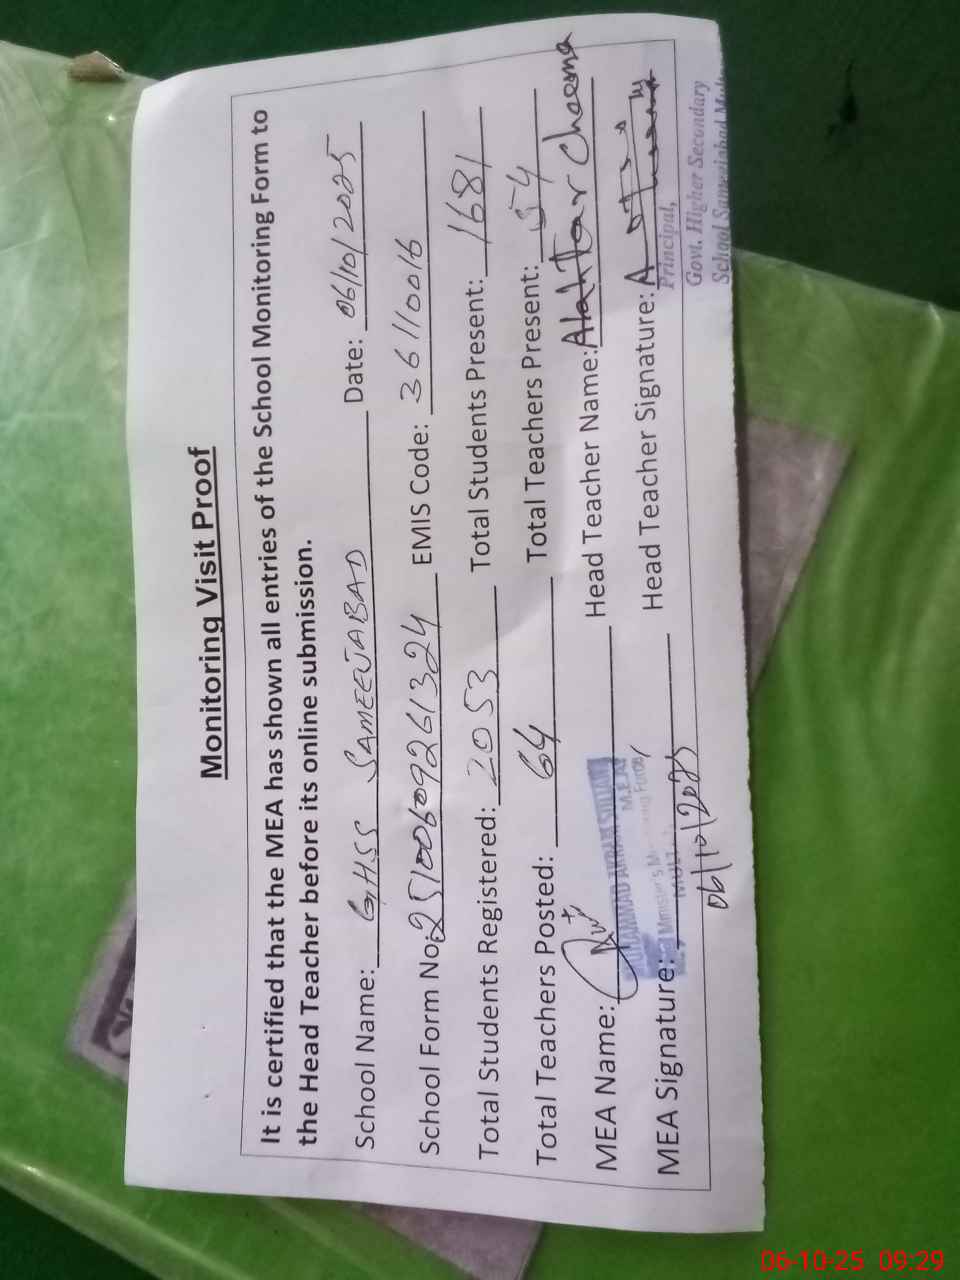 Monitoring Visit Proof
It is certified that the MEA has shown all entries of the School Monitoring Form to
the Head Teacher before its online submission.
School Name: GHSS SAMEEJABAD Date: 06/10/2025
School Form No: 25100609261324 EMIS Code: 36110016
Total Students Registered: 2053 Total Students Present: 1681
Total Teachers Posted: 64 Total Teachers Present: 54
MEA Name: Head Teacher Name: Cheema
MUHAMMAD AKRAM
M.E.A
MEA Signature: Head Teacher Signature:
06/10/2025
Principal,
Govt. Higher Secondary
School Sameejabad
06-10-25 09:29